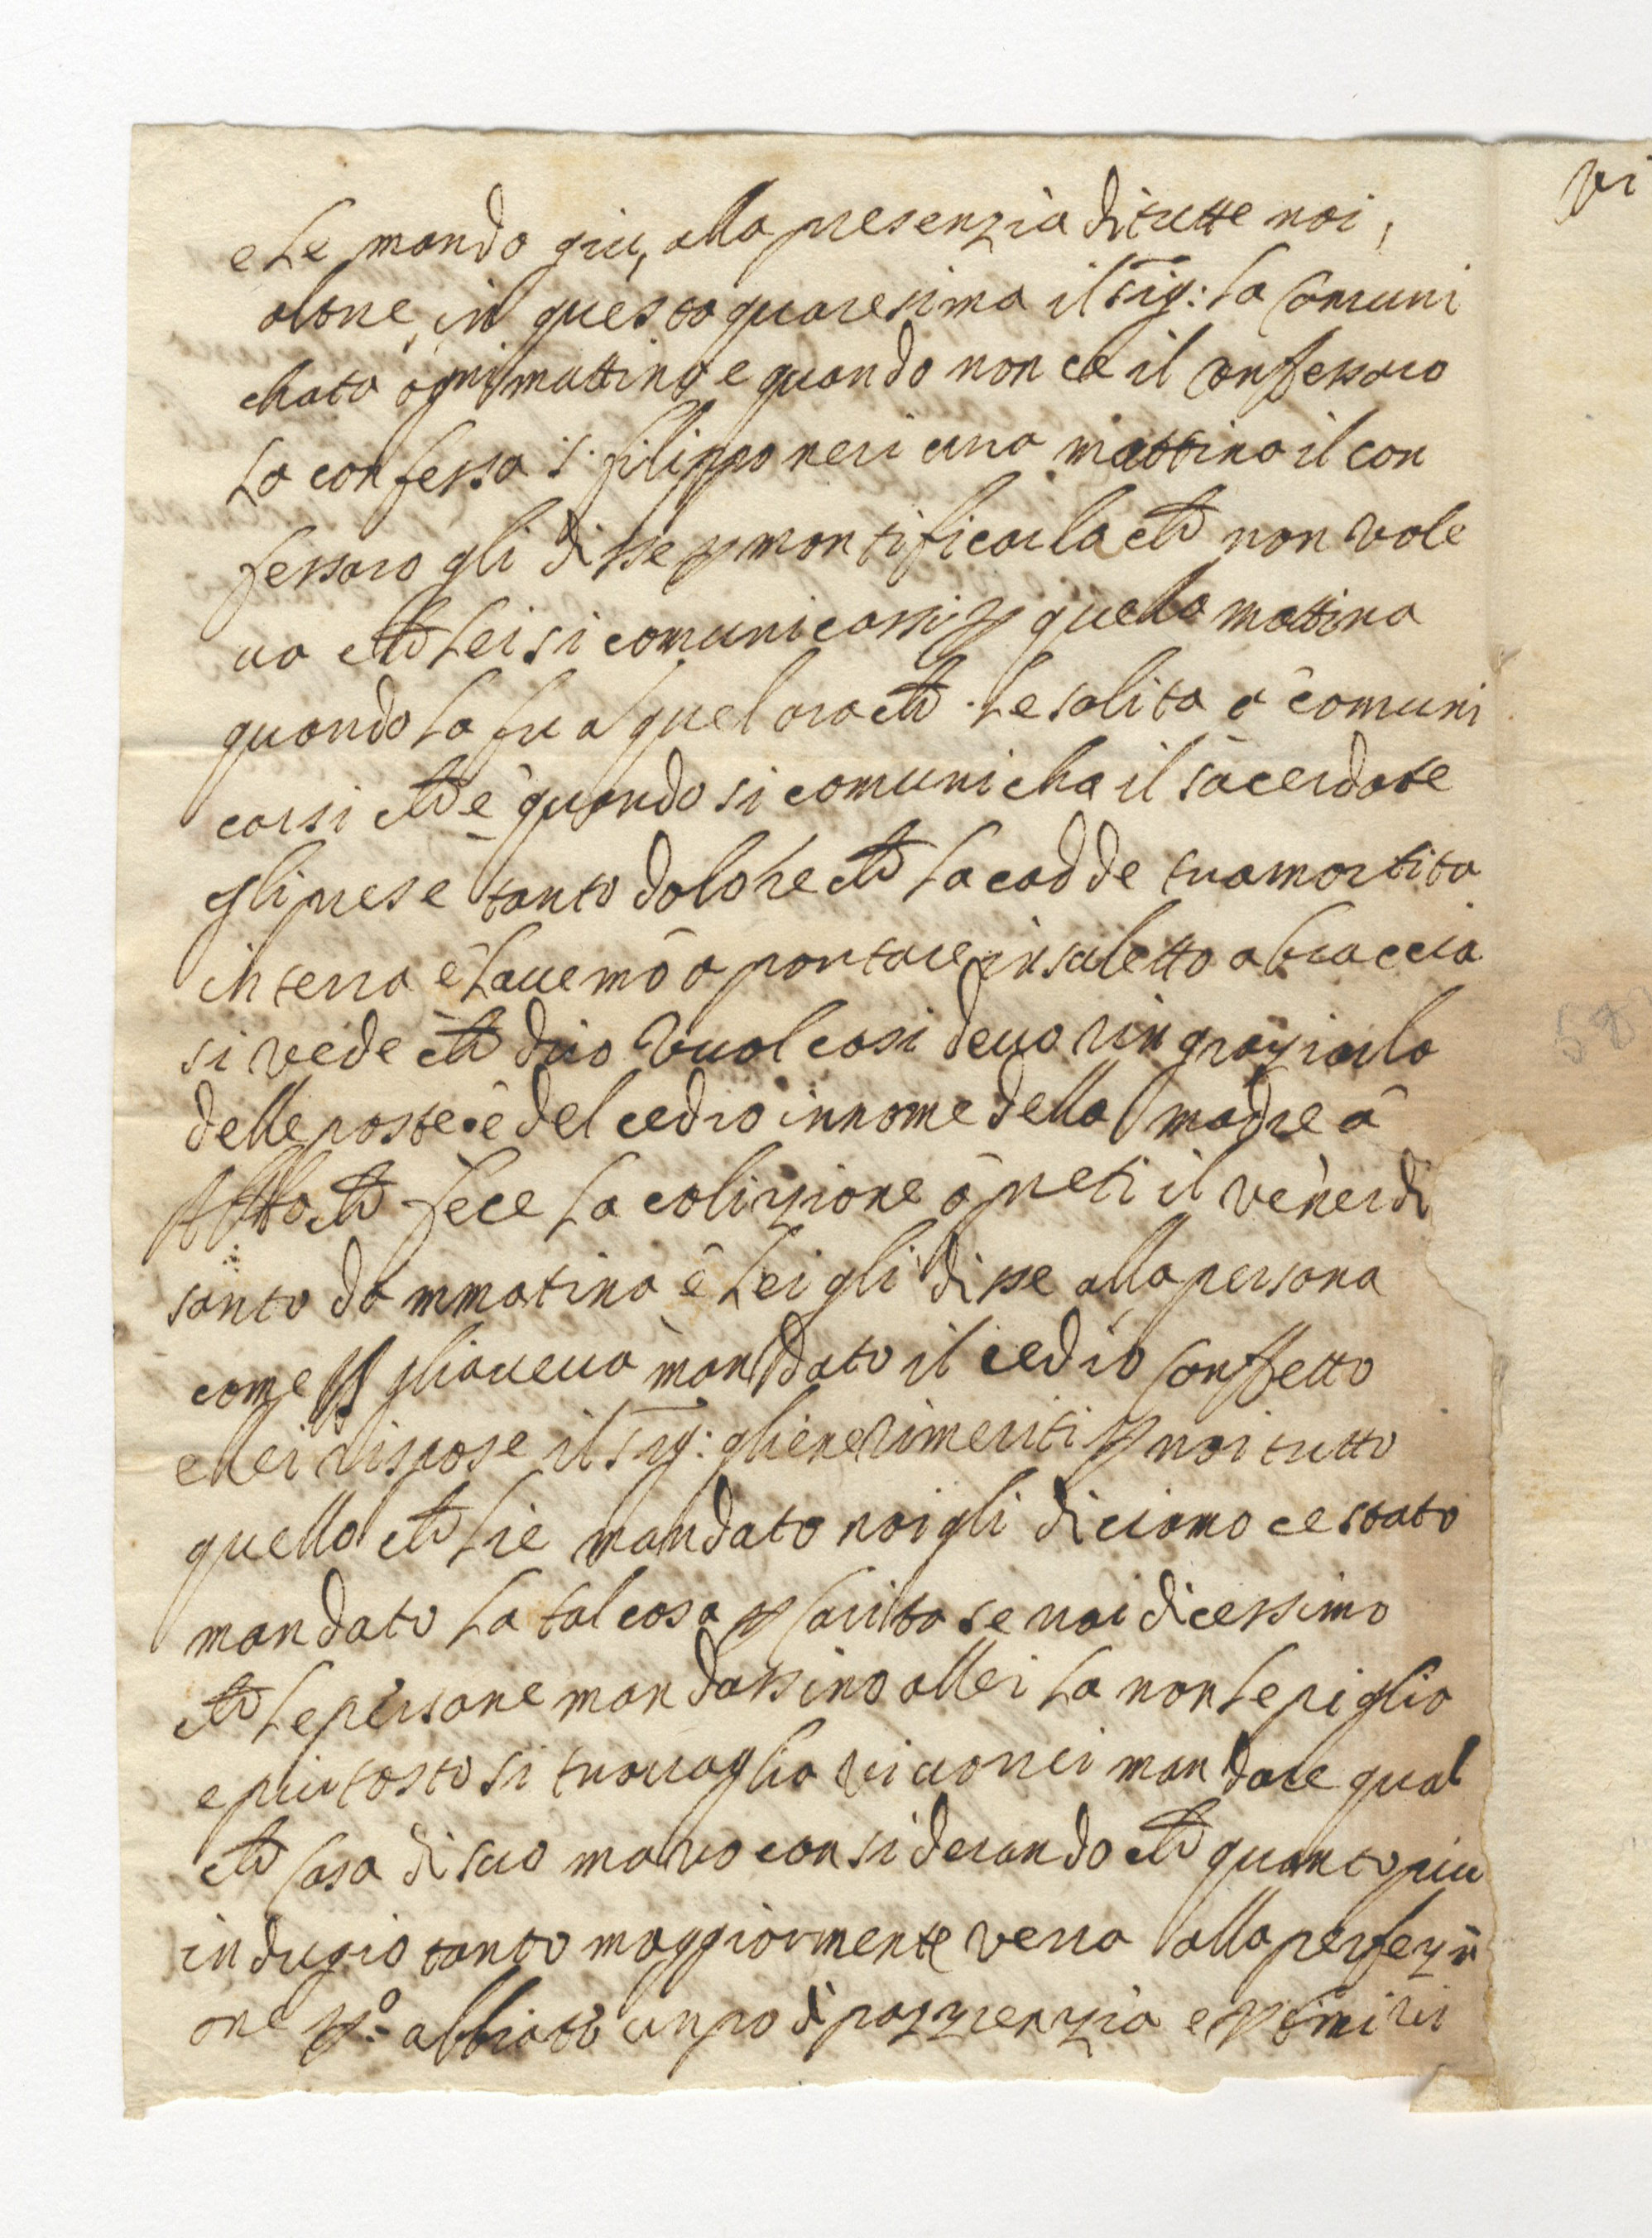 e le mando giu, alla presenzia di tutte noi,
oltre, in questa quaresima il Sig: la comuni
chata ogni mattina e quando non ce il confessoro
la confessa S. filippo neri una mattina il con
fessoro gli disse p mortificarla che non vole
va che lei si comunicassi p quella mattina
quando la fu a quel ora che le solita a comuni
carsi che è quando si comunicha il sacerdote
gli prese tanto dolore che la cadde tramortita
in terra e lavemo a portare in sul letto a braccia
si vede che dio vuol cosi devo ringraziarla
delle poste e del cedro in nome della madre a
che fece la colizione a preti il venerdi
santo da mmatina e lei gli disse alla persona
come gliaveva mandato il cedro confetto
e lei rispose il Sig: gliene rimeriti p noi tutto
quello che lie mandato noi gli diciamo ce stato
mandato la tal cosa p carita se noi dicessimo
che le persone mandassino allei la non le piglia
e piu tosto si travaglia vi vorrei mandare qual
che cosa di suo mano considerando che quanto piu
indugio tanto maggiormente verra alla perfezzi
one po: abbiate un po di pazzienzia e